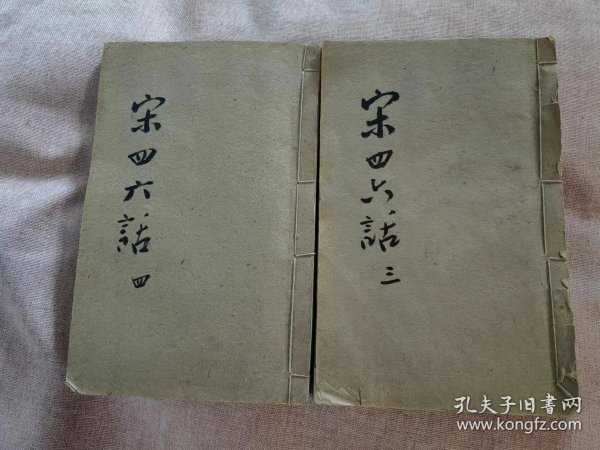 宋四六話 四
宋四六話 三
孔夫子旧書网
www.kongfz.com